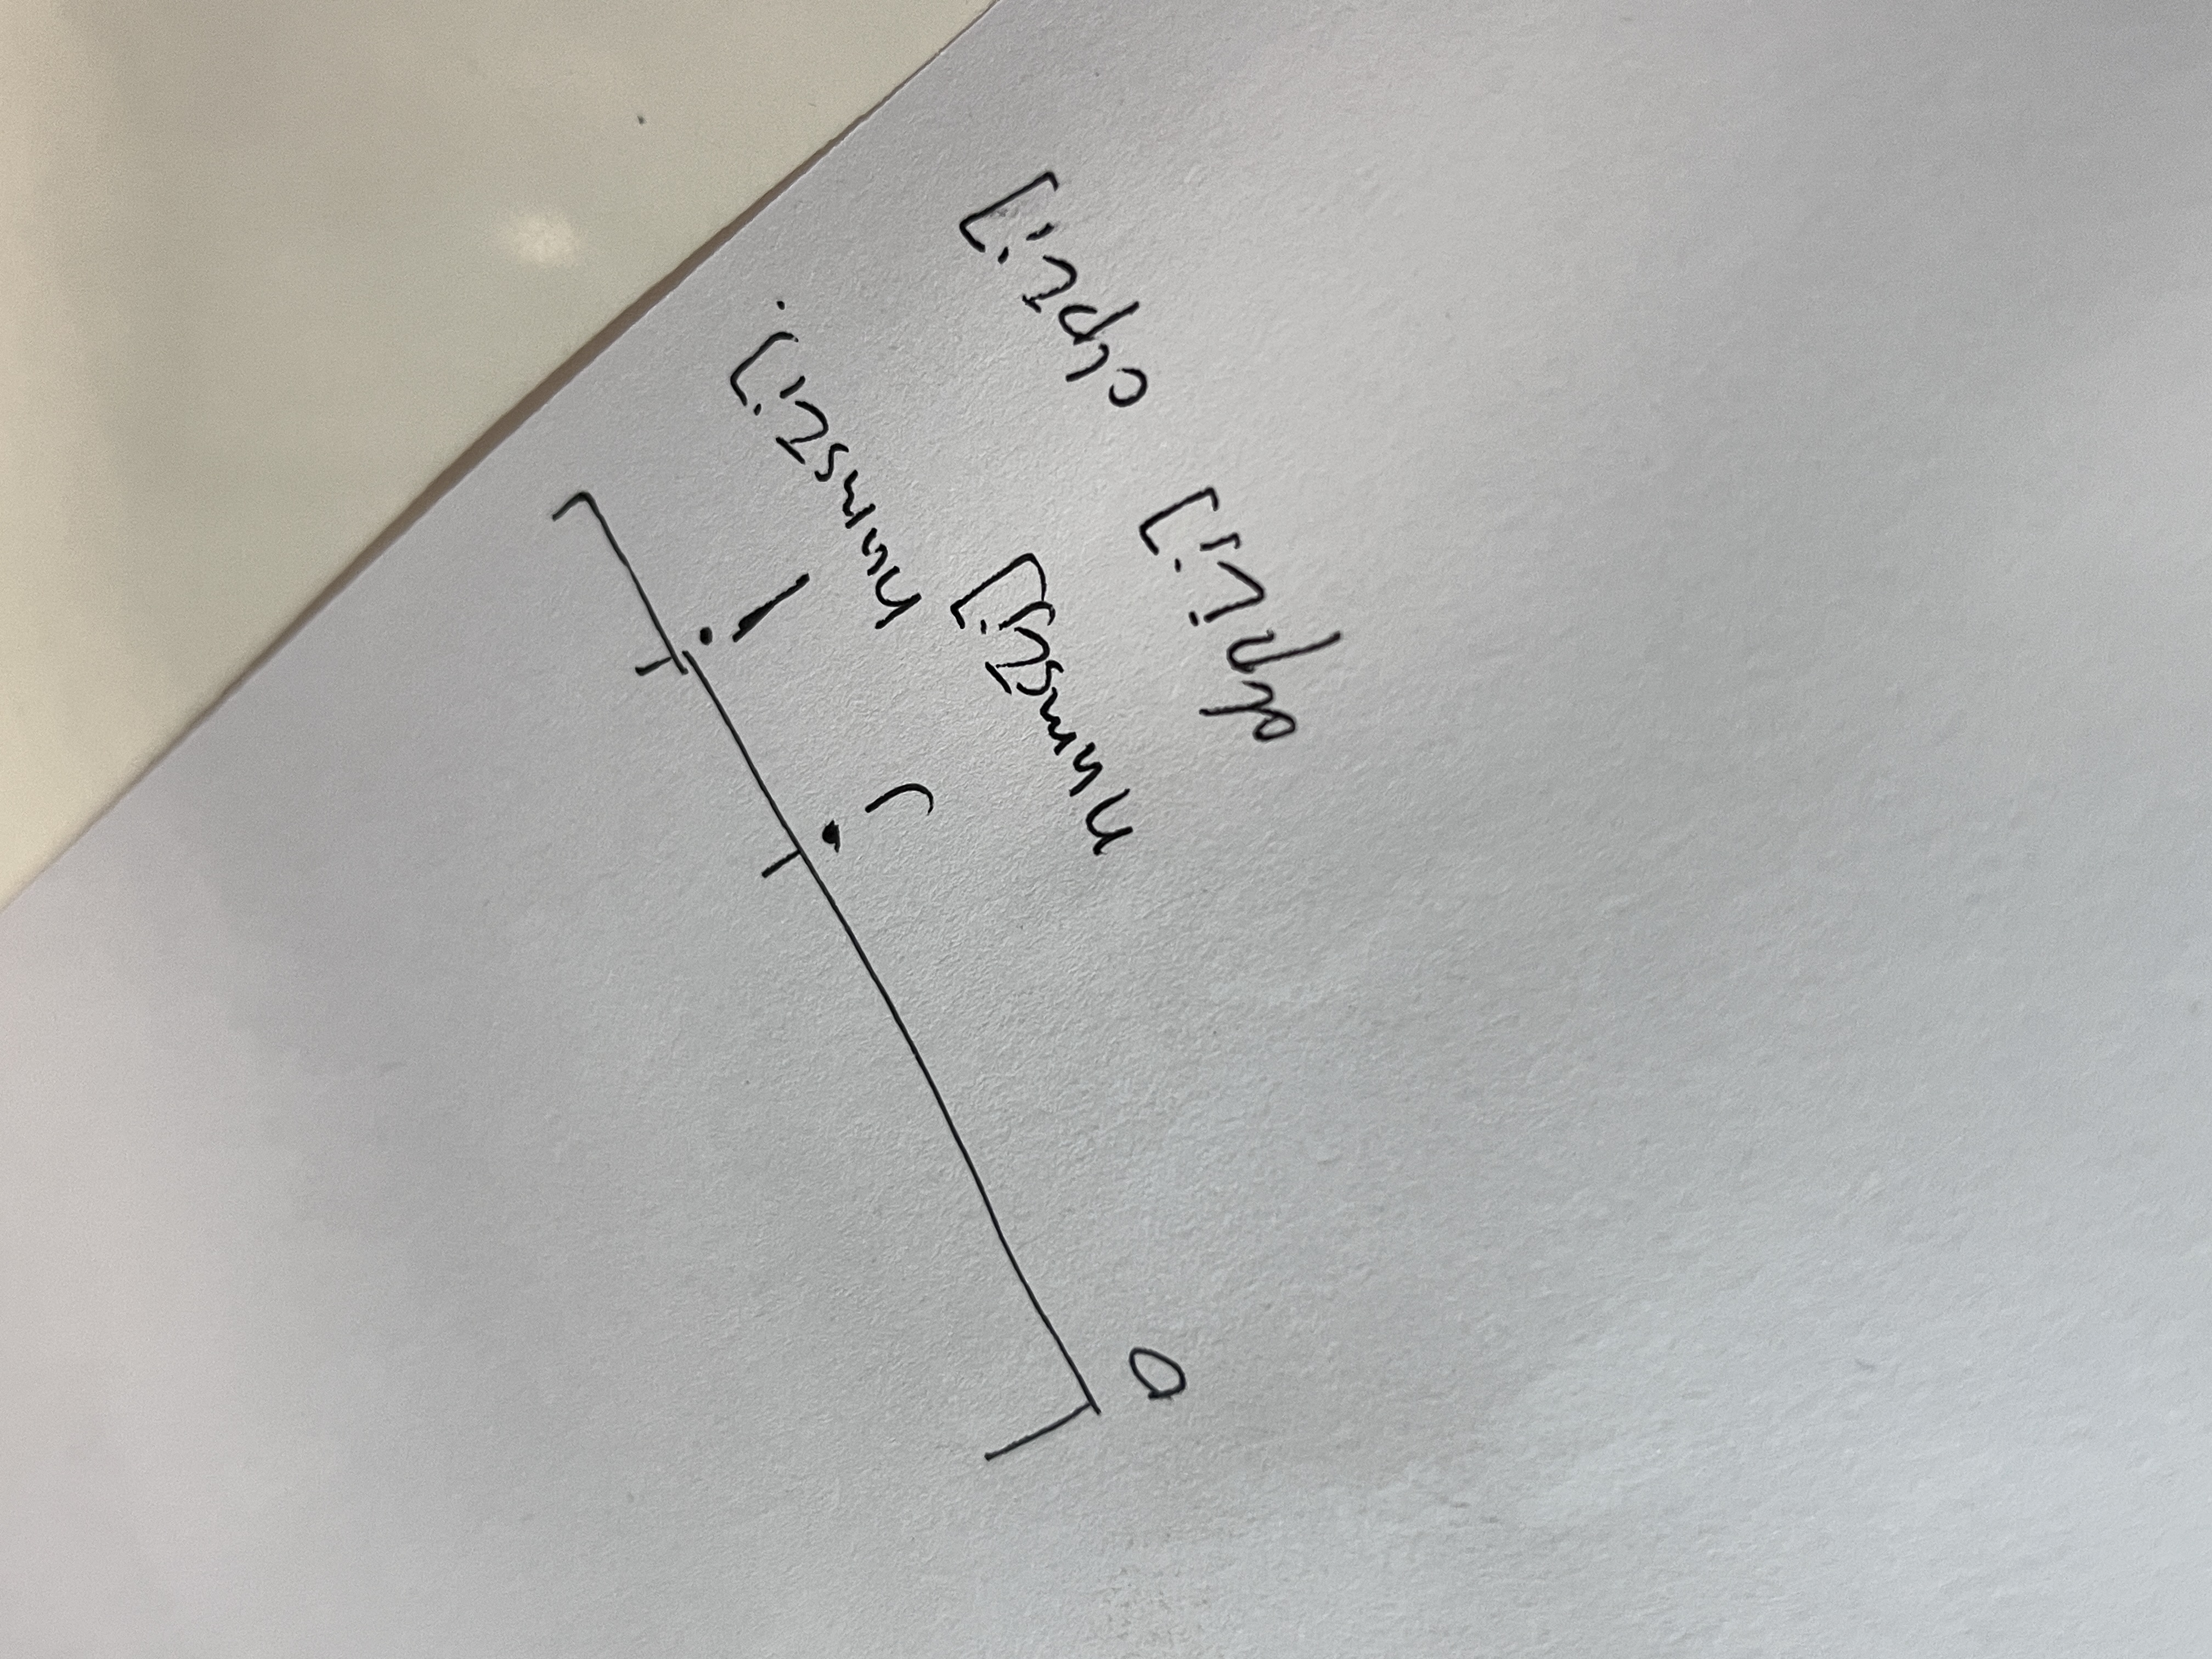 0 j i
nums[j] nums[i].
dp[j] dp[i]